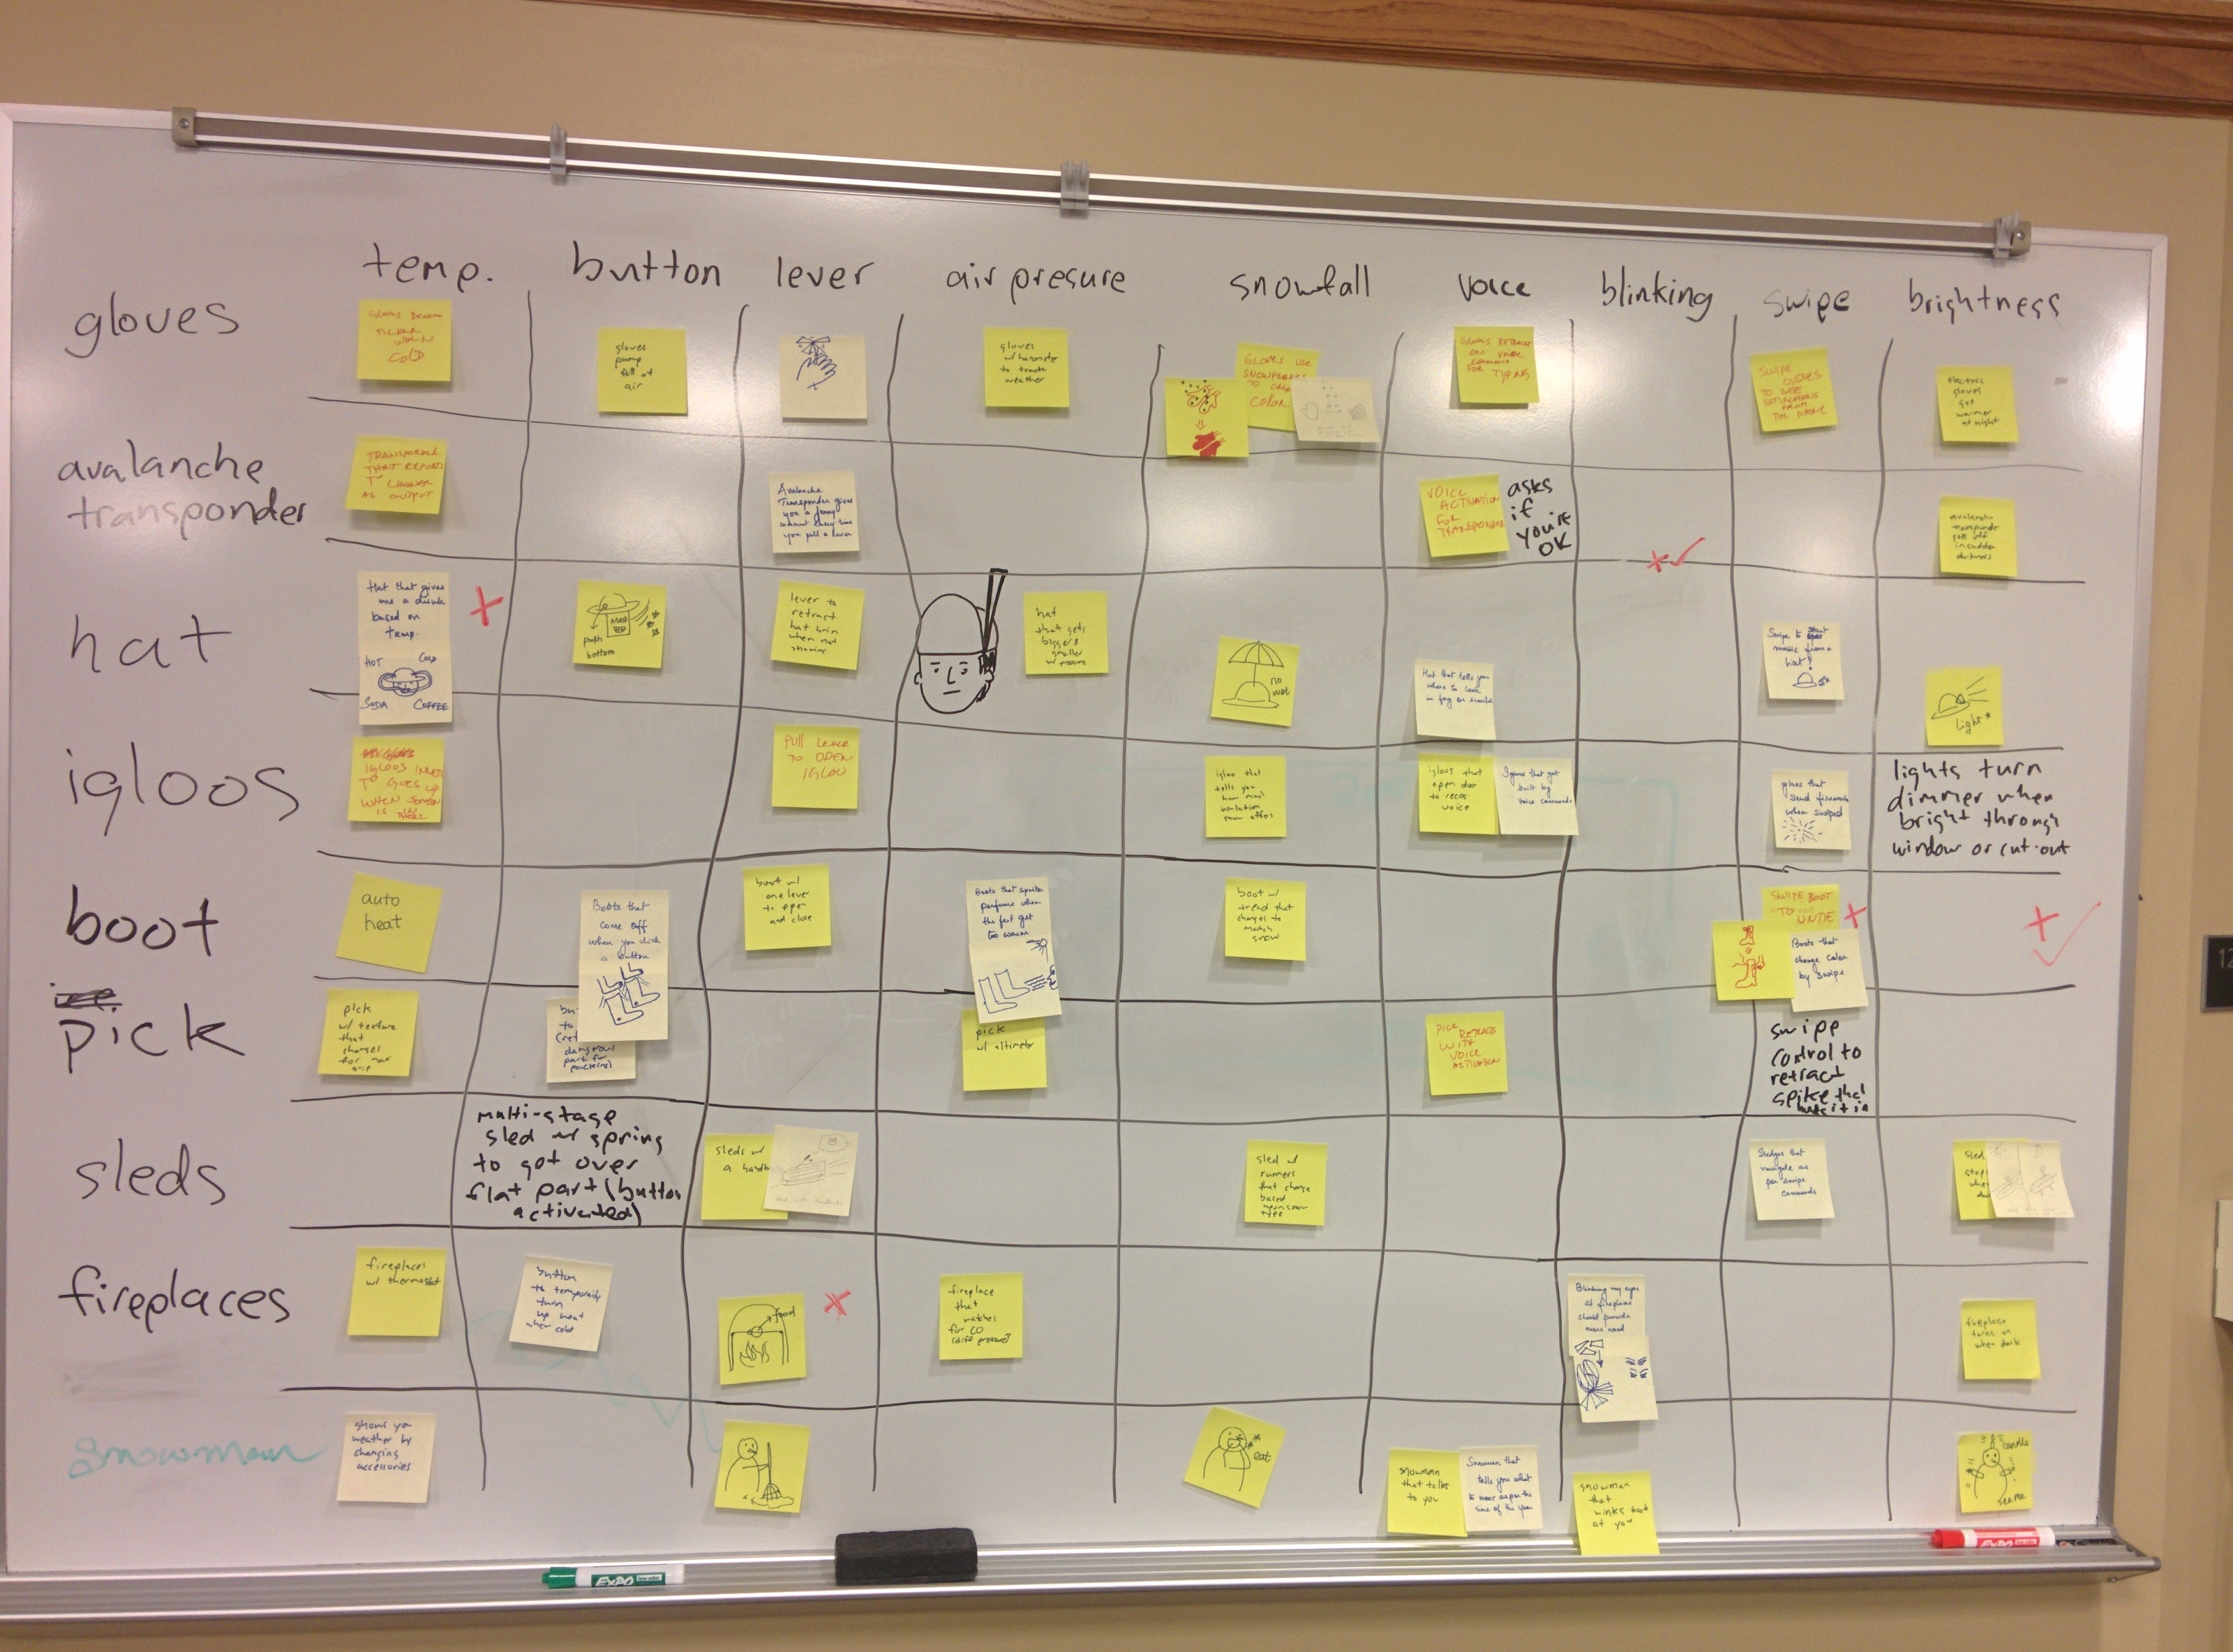 temp.
button
lever
air presure
snowfall
voice
blinking
swipe
brightness
gloves
COLD
gloves
pump
full of
air
gloves
to track
weather
GLOVES USE
TO
COLOR
GLOVES RETRACT
ON VOICE
FOR TYPING
SWIPE
GLOVES
TO
FROM
THE PHONE
electric
gloves
get
warmer
at night
avalanche
transponder
TRANSPONDER
THAT
AS OUTPUT
Avalanche
Transponder gives
you a funny
comment every time
you pull a lever
VOICE
ACTIVATION
FOR
TRANSPONDER
asks
if
you're
OK
avalanche
goes off
in sudden
darkness
hat
Hat that gives
me a drink
based on
temp.
HOT
COLD
SODA
COFFEE
push
bottom
lever to
retract
hat brim
when not
hat
that gets
bigger &
smaller
w/ pressure
no
wet
Hat that tells you
where to look
in fog or
Swipe to
music from a
hat!
light
igloos
IGLOOS INNER
T° GOES UP
WHEN
IS
PULL LEVER
TO OPEN
IGLOO
igloo that
tells you
how much
insulation
snow offers
igloos that
open door
to recog
voice
Igloos that get
built by
voice commands
that
send fireworks
when swiped
lights turn
dimmer when
bright through
window or cut-out
boot
auto
heat
Boots that
come off
when you click
a button
boot w/
one lever
to open
and close
Boots that
perfume when
the feet get
too warm
boot w/
tread that
changes to
match
snow
SWIPE BOOT
TO UNTIE
Boots that
change color
by swipe
pick
pick
w/ texture
that
changes
for max
grip
to
dangerous
part for
pick
w/ altimeter
PICK
RETRACTS
WITH
VOICE
ACTIVATION
swipe
control to
retract
spike that
sleds
multi-stage
sled w/ spring
to got over
flat part (button
activated)
sleds w/
a
sled w/
runners
that change
based
type
Sledges that
navigate as
per swipe
commands
sled
fireplaces
fireplaces
w/ thermostat
button
to temporarily
turn
up heat
when cold
food
fireplace
that
watches
for CO
(diff pressure?)
Blinking my eyes
at fireplace
should provide
more wood
fireplace
turns on
when dark
snowman
shows you
weather by
changing
accessories
eat
snowman
that talks
to you
Snowman that
tells you what
to wear as per the
time of the year
snowman
that
winks back
at you
candle
see me
EXPO